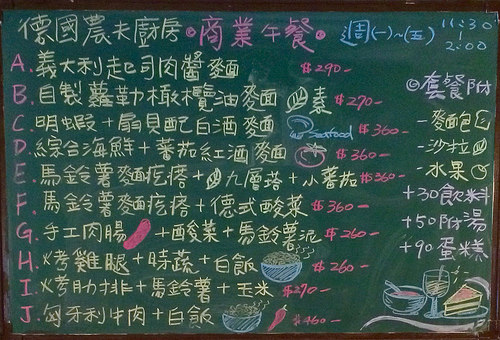 德國農夫廚房 商業午餐 週(一)~(五) 11:30 | 2:00
A. 義大利起司肉醬麵 $290-
B. 自製蘿勒橄欖油麵 素 $270-
C. 明蝦+扇貝配白酒麵 Seafood $360-
D. 綜合海鮮+蕃茄紅酒麵 $360-
E. 馬鈴薯麵疙瘩+九層塔+小蕃茄 $360-
F. 馬鈴薯麵疙瘩+德式酸菜 $360-
G. 手工肉腸+酸菜+馬鈴薯泥 $260-
H. 烤雞腿+時蔬+白飯 $260-
I. 烤肋排+馬鈴薯+玉米 $270-
J. 匈牙利牛肉+白飯 $460-
◎套餐附
-麵包
-沙拉
-水果
+30飲料
+50附湯
+90蛋糕